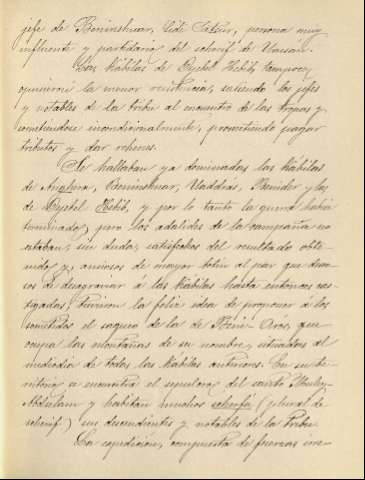 jefe de Beninshuar, Sidi Tatur, persona muy
influente y partidario del scherif de Uassán.
Las Kábilas de Dyebel Hebib, tampoco
opusieron la menor resistencia, saliendo los jefes
y notables de la tribu al encuentro de las tropas y
sometiéndose incondicionalmente, prometiendo pagar
tributos y dar rehenes.
Se hallaban ya dominadas las Kábilas
de Anghera, Beninshuar, Uaddrás, Benider y los
de Dyebel Hebib, y por lo tanto la guerra había
terminado, pero los adalides de la campaña no
estaban, sin duda, satisfechos del resultado obte-
nido y, ansiosos de mayor botín al par que deseo-
sos de desagraviar á las Kábilas hasta entonces cas-
tigadas, tuvieron la feliz idea de proponer á los
sometidos el saqueo de la de Beni-Arós, que
ocupa las montañas de su nombre, situadas al
mediodia de todas las Kábilas anteriores. En su te-
rritorio se encuentra el sepulcro del santo Muley-
Abdselam y habitan muchos scherfa (plural de
scherif) sus descendientes y notables de la Tribu.
La expedición, compuesta de fuerzas irre-